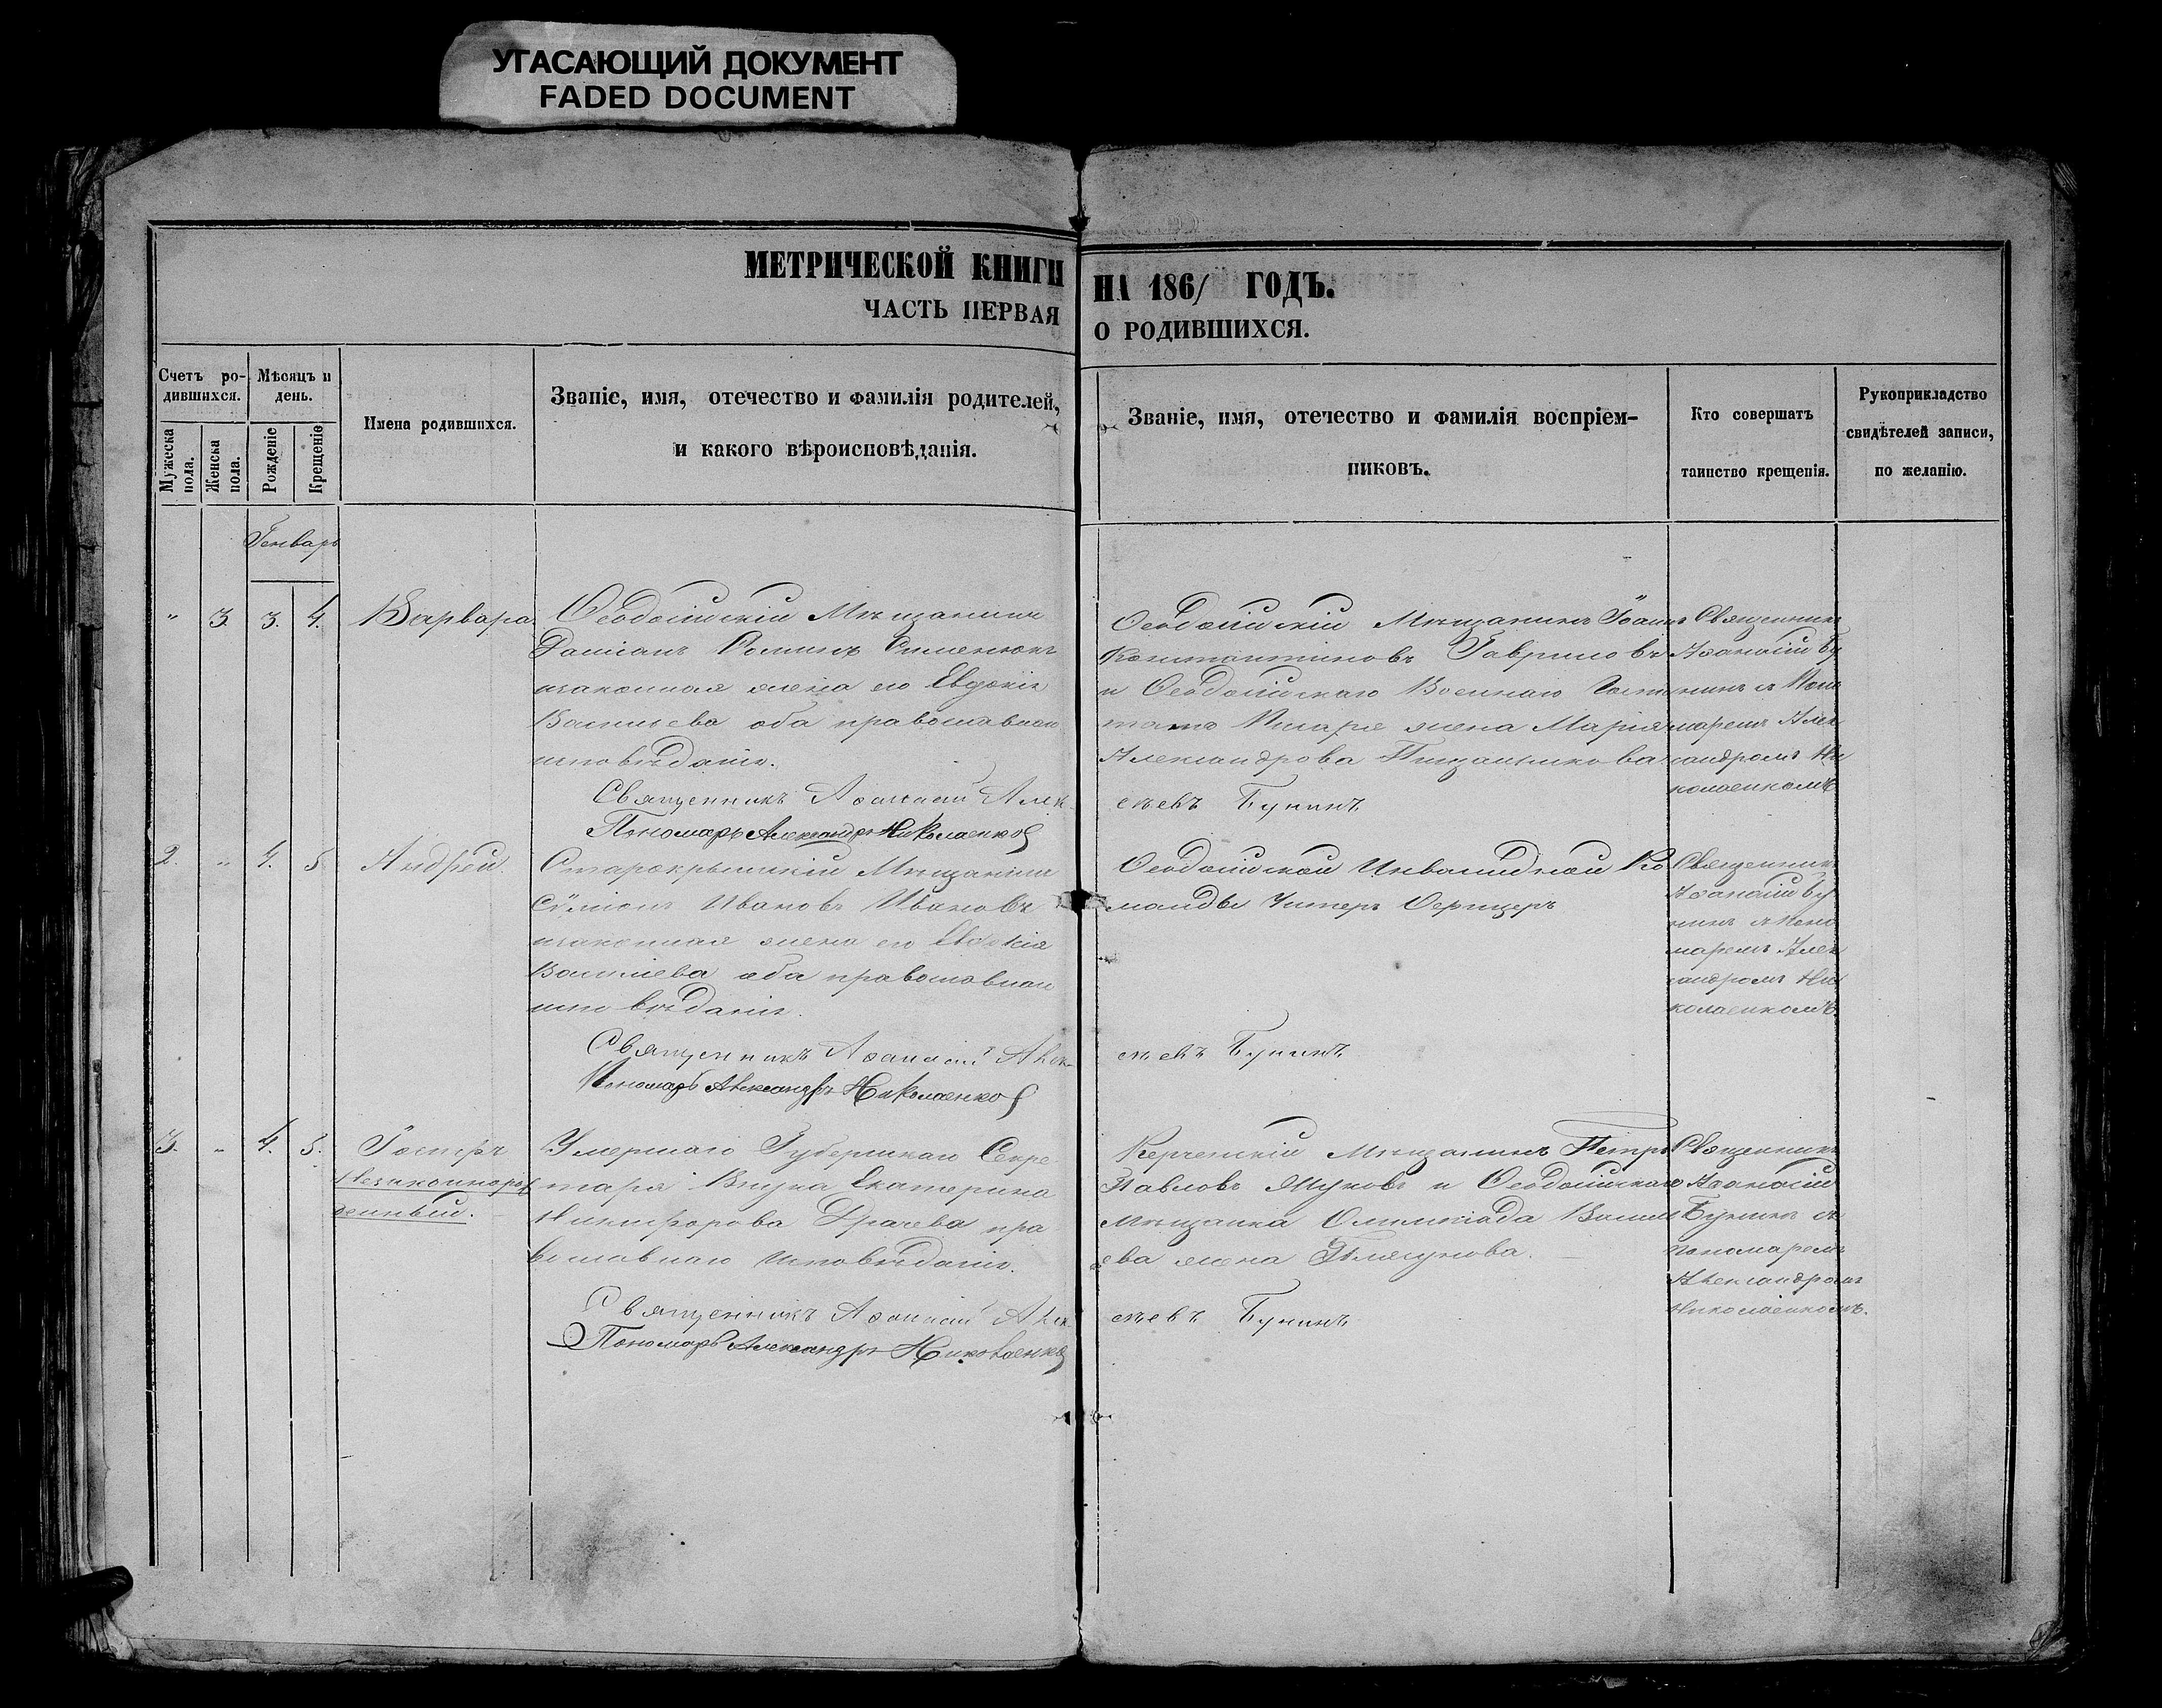 УГАСАЮЩИЙ ДОКУМЕНТ
FADED DOCUMENT
МЕТРИЧЕСКОЙ КНИГИ НА 1861 ГОДЪ.
ЧАСТЬ ПЕРВАЯ О РОДИВШИХСЯ.
Счетъ ро-
дившихся.
Мужеска
пола.
Женска
пола.
Мѣсяцъ и
день.
Рожденіе
Крещеніе
Имена родившихся.
Званіе, имя, отечество и фамилія родителей,
и какого вѣроисповѣданія.
Званіе, имя, отечество и фамилія воспріем-
никовъ.
Кто совершатъ
таинство крещенія.
Рукоприкладство
свидѣтелей записи,
по желанію.
Генварь
" 3. 3. 4. Варвара
Ѳеодосійскій Мѣщанинъ
законная жена его Евдокія
Васильева оба православнаго
исповѣданія.
Священникъ Аѳанасій Алек
Пономарь Александръ Николаенко
Ѳеодосійскій Мѣщанинъ Іоаннъ
Константиновъ Гавриловъ
и Ѳеодосійскаго Военнаго Госпи
таля Писаря жена Марія
Александрова
сѣевъ Бунинъ
Священникъ
Аѳанасій Бу
нинъ съ Поно
маремъ Алек
сандромъ Ни
колаенкомъ
2. " 4. 5 Андрей.
Старокрымскій Мѣщанинъ
Сѵмеонъ Ивановъ Ивановъ
законная жена его Евдокія
Васильева оба православнаго
исповѣданія.
Священникъ Аѳанасій Алек
Пономарь Александръ Николаенко
Ѳеодосійской Инвалидной Ко
манды Унтеръ Офицеръ
сѣевъ Бунинъ
Священникъ
Аѳанасій Бу
нинъ съ Поно
маремъ Алек
сандромъ Ни
колаенкомъ.
3. " 4. 5. Іосифъ
Незаконнорож
денный.
Умершаго Губернскаго Секре
таря Внука Екатерина
Никифорова Драчева пра
вославнаго исповѣданія.
Священникъ Аѳанасій Алек
Пономарь Александръ Николаенко
Керченскій Мѣщанинъ Петръ
Павловъ и Ѳеодосійскаго
Мѣщанина Олимпіада Василь
ева жена
сѣевъ Бунинъ
Священникъ
Аѳанасій
Бунинъ съ
пономаремъ
Александромъ
Николаенкомъ.